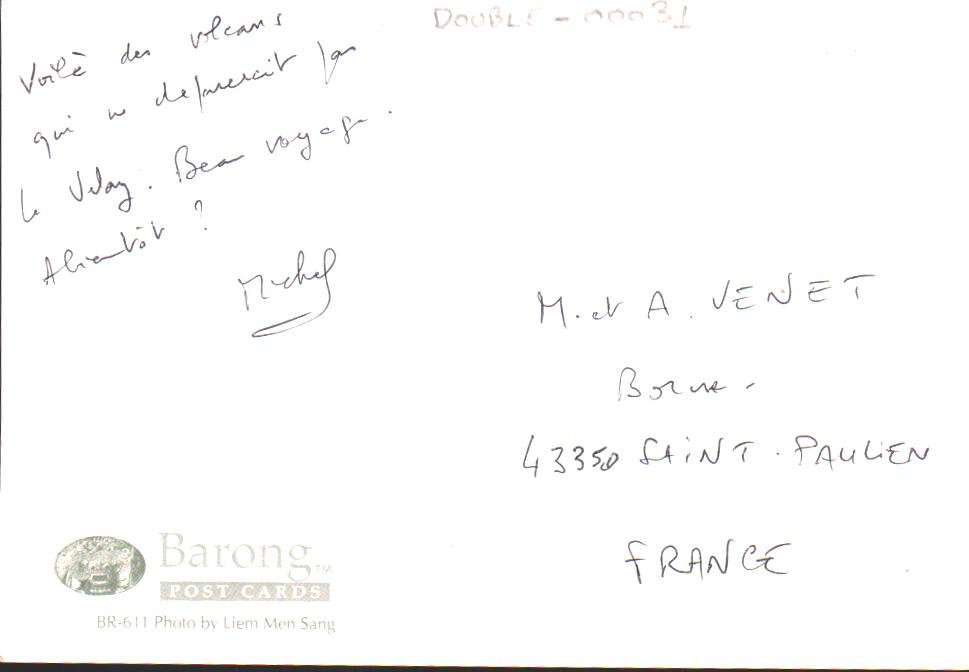 DOUBLE - 00031
Voilà des volcans
qui ne depareraient pas
le Velay. Beau voyage.
Abientôt ?
Michel
M. et A. VENET
Borne -
43350 SAiNT. PAULiEN
FRANCE
Barong TM
POST CARDS
BR-611 Photo by Liem Men Sang